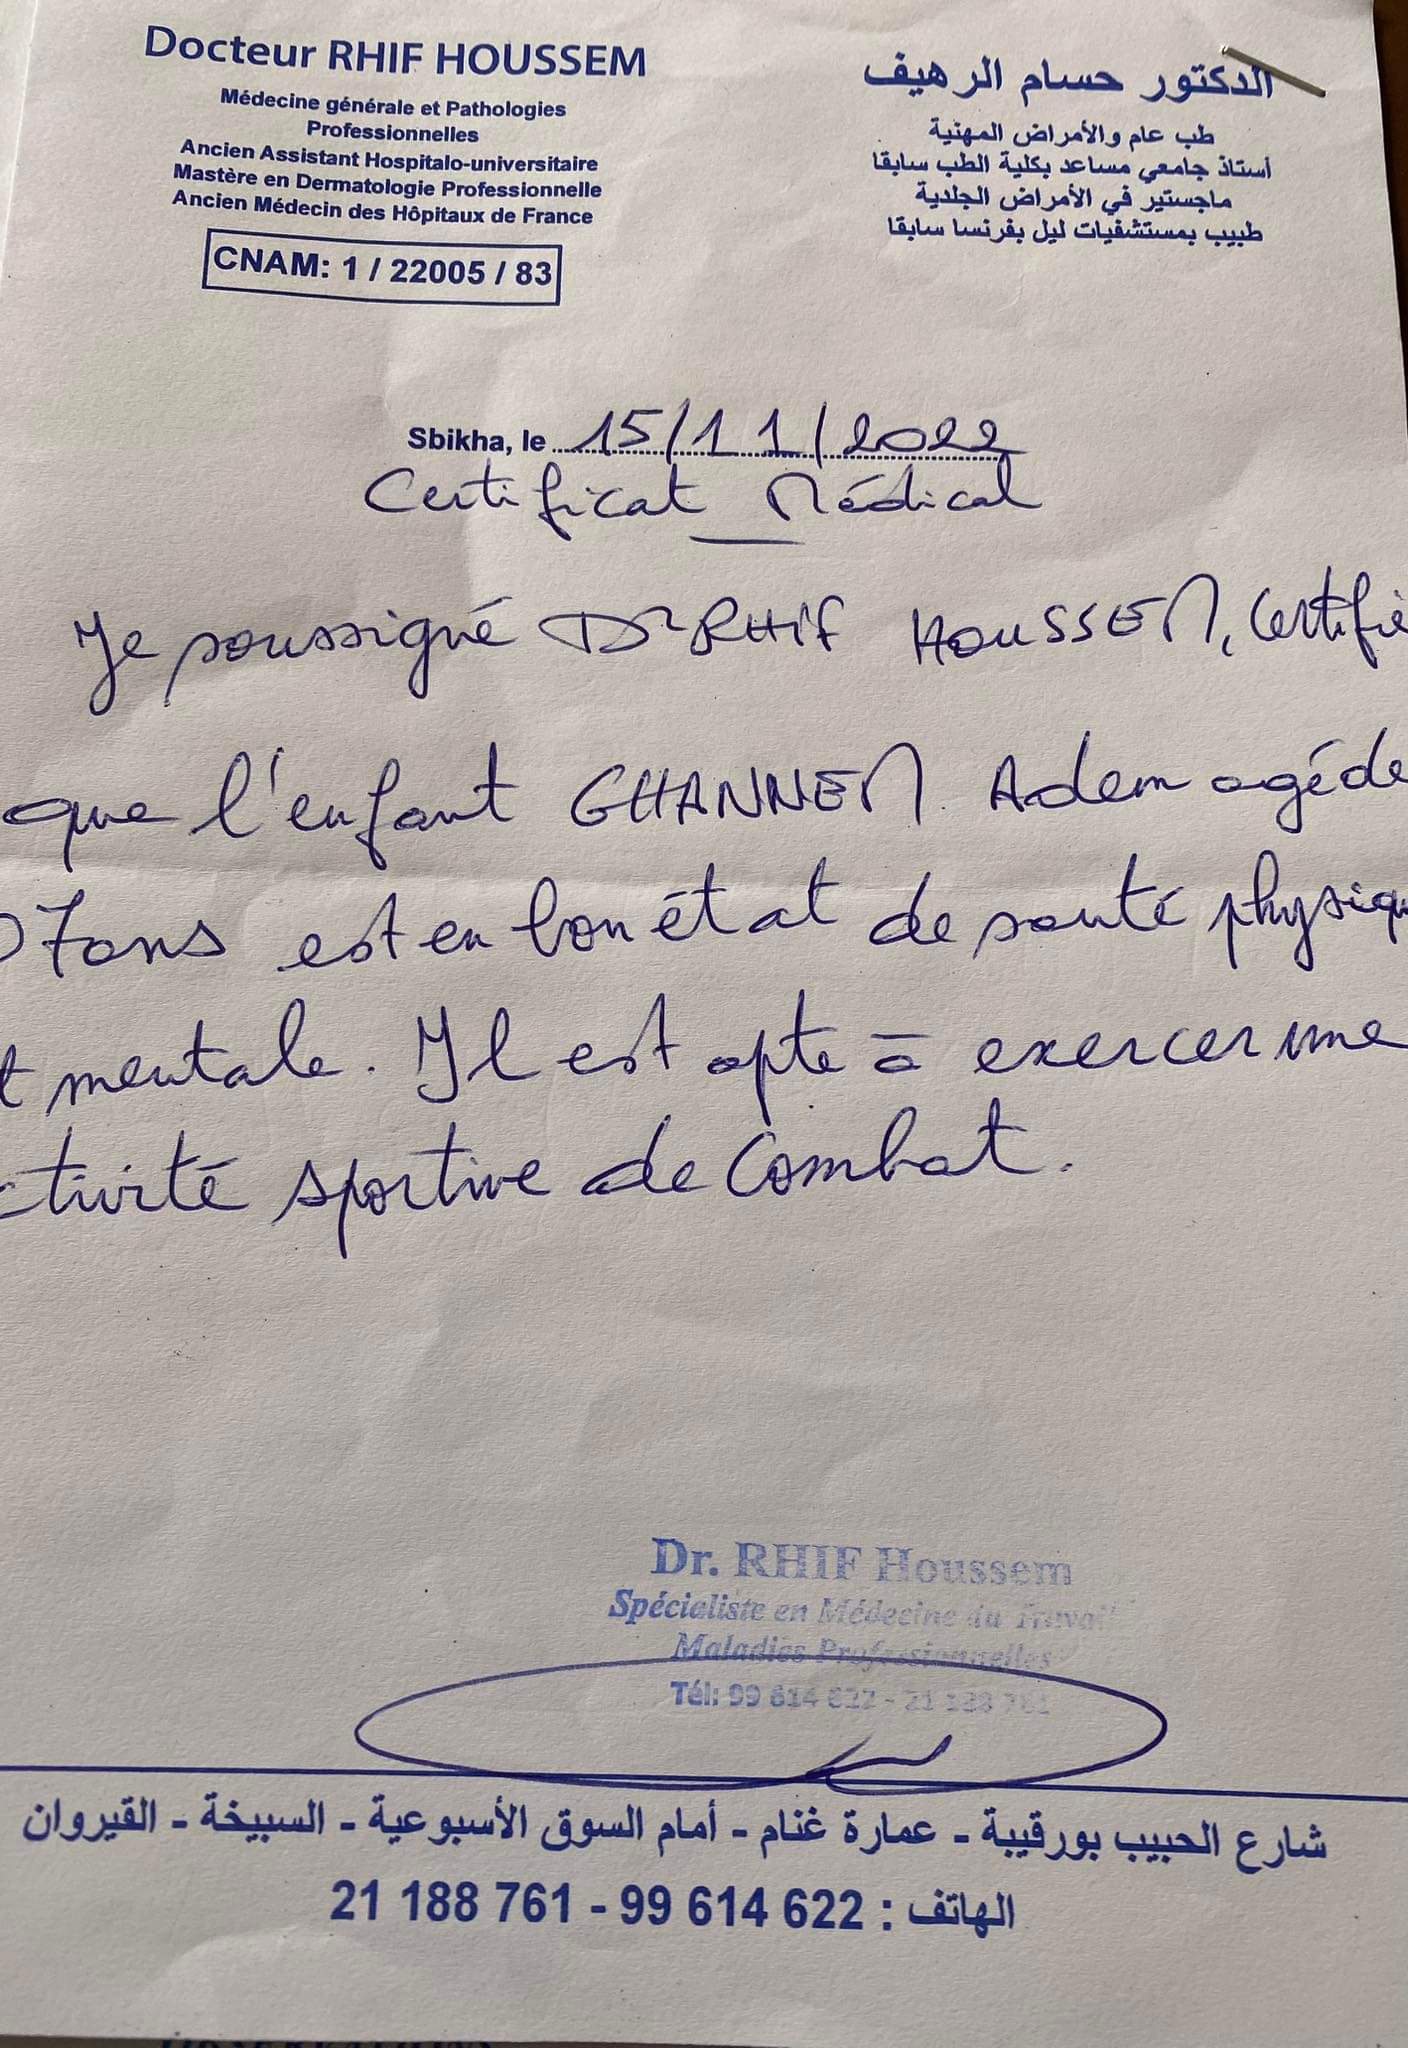 Docteur RHIF HOUSSEM
Médecine générale et Pathologies
Professionnelles
Ancien Assistant Hospitalo-universitaire
Mastère en Dermatologie Professionnelle
Ancien Médecin des Hôpitaux de France
CNAM: 1 / 22005 / 83
الدكتور حسام الرهيف
طب عام والأمراض المهنية
أستاذ جامعي مساعد بكلية الطب سابقا
ماجستير في الأمراض الجلدية
طبيب بمستشفيات ليل بفرنسا سابقا
Sbikha, le 15/11/2022
Certificat Médical
Je soussigné Dr RHIF HOUSSEM, Certifie
que l'enfant GHANNEM Adem agé de
7 ans est en bon état de santé physiqu
t mentale. Il est apte à exercer une
ctivité sportive de Combat.
Dr. RHIF Houssem
Spécialiste en Médecine du Travail
Maladies Professionnelles
Tél: 99 614 622 - 21 188 761
شارع الحبيب بورقيبة - عمارة غنام - أمام السوق الأسبوعية - السبيخة - القيروان
الهاتف : 99 614 622 - 21 188 761